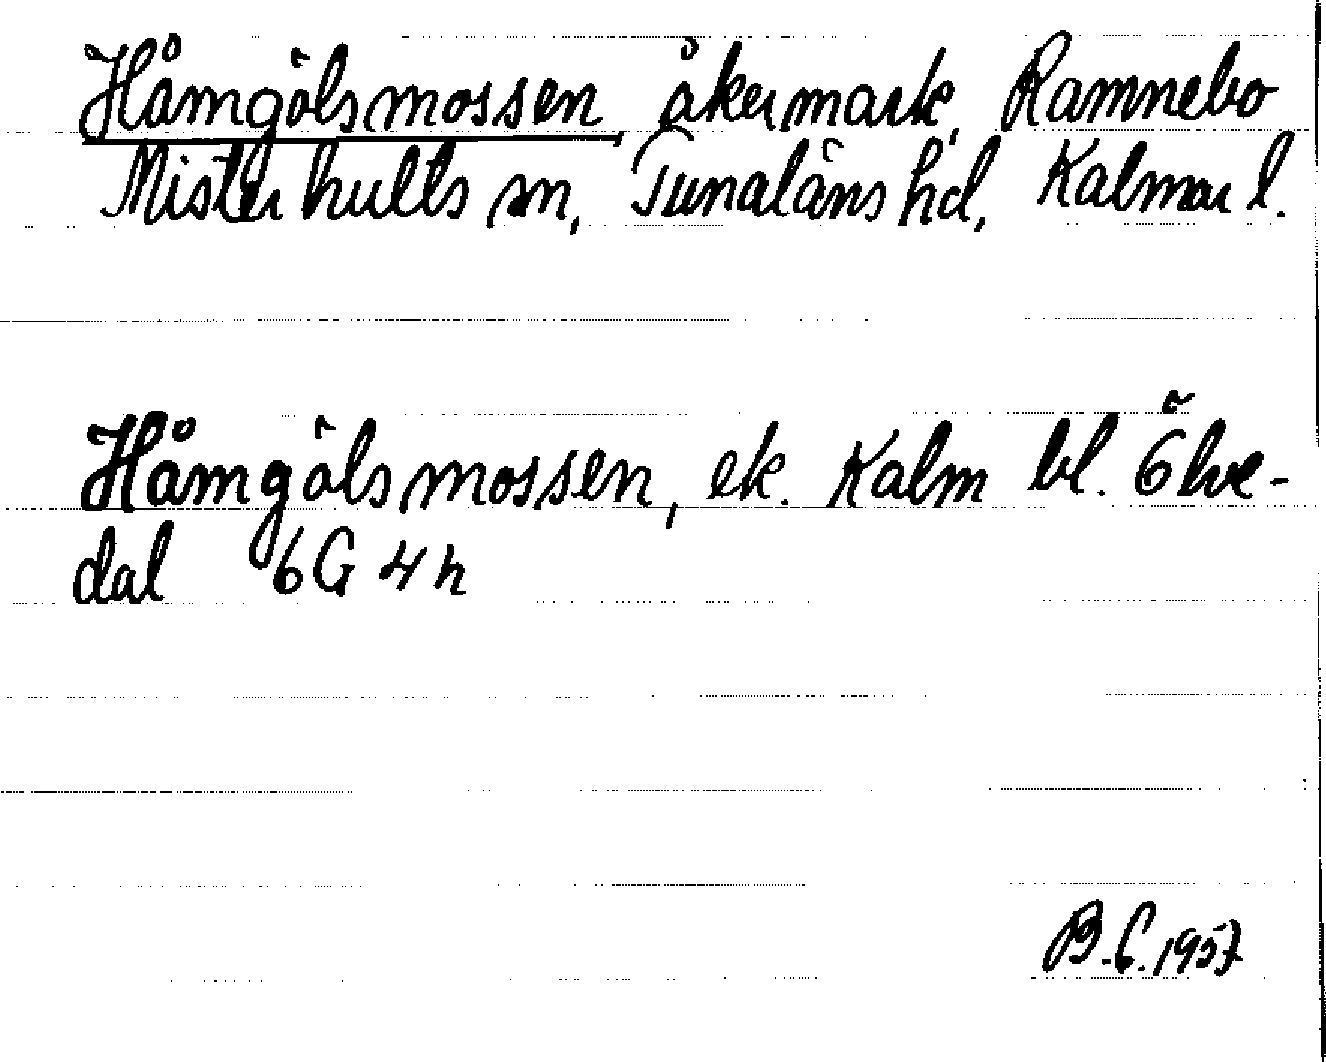 Håmgölsmossen, åkermark, Ramnebo
Misterhults sn, Tunaläns hd, Kalmar l.
Håmgölsmossen, ek. Kalm bl. Ölve-
dal 6G 4h
B.C. 1957